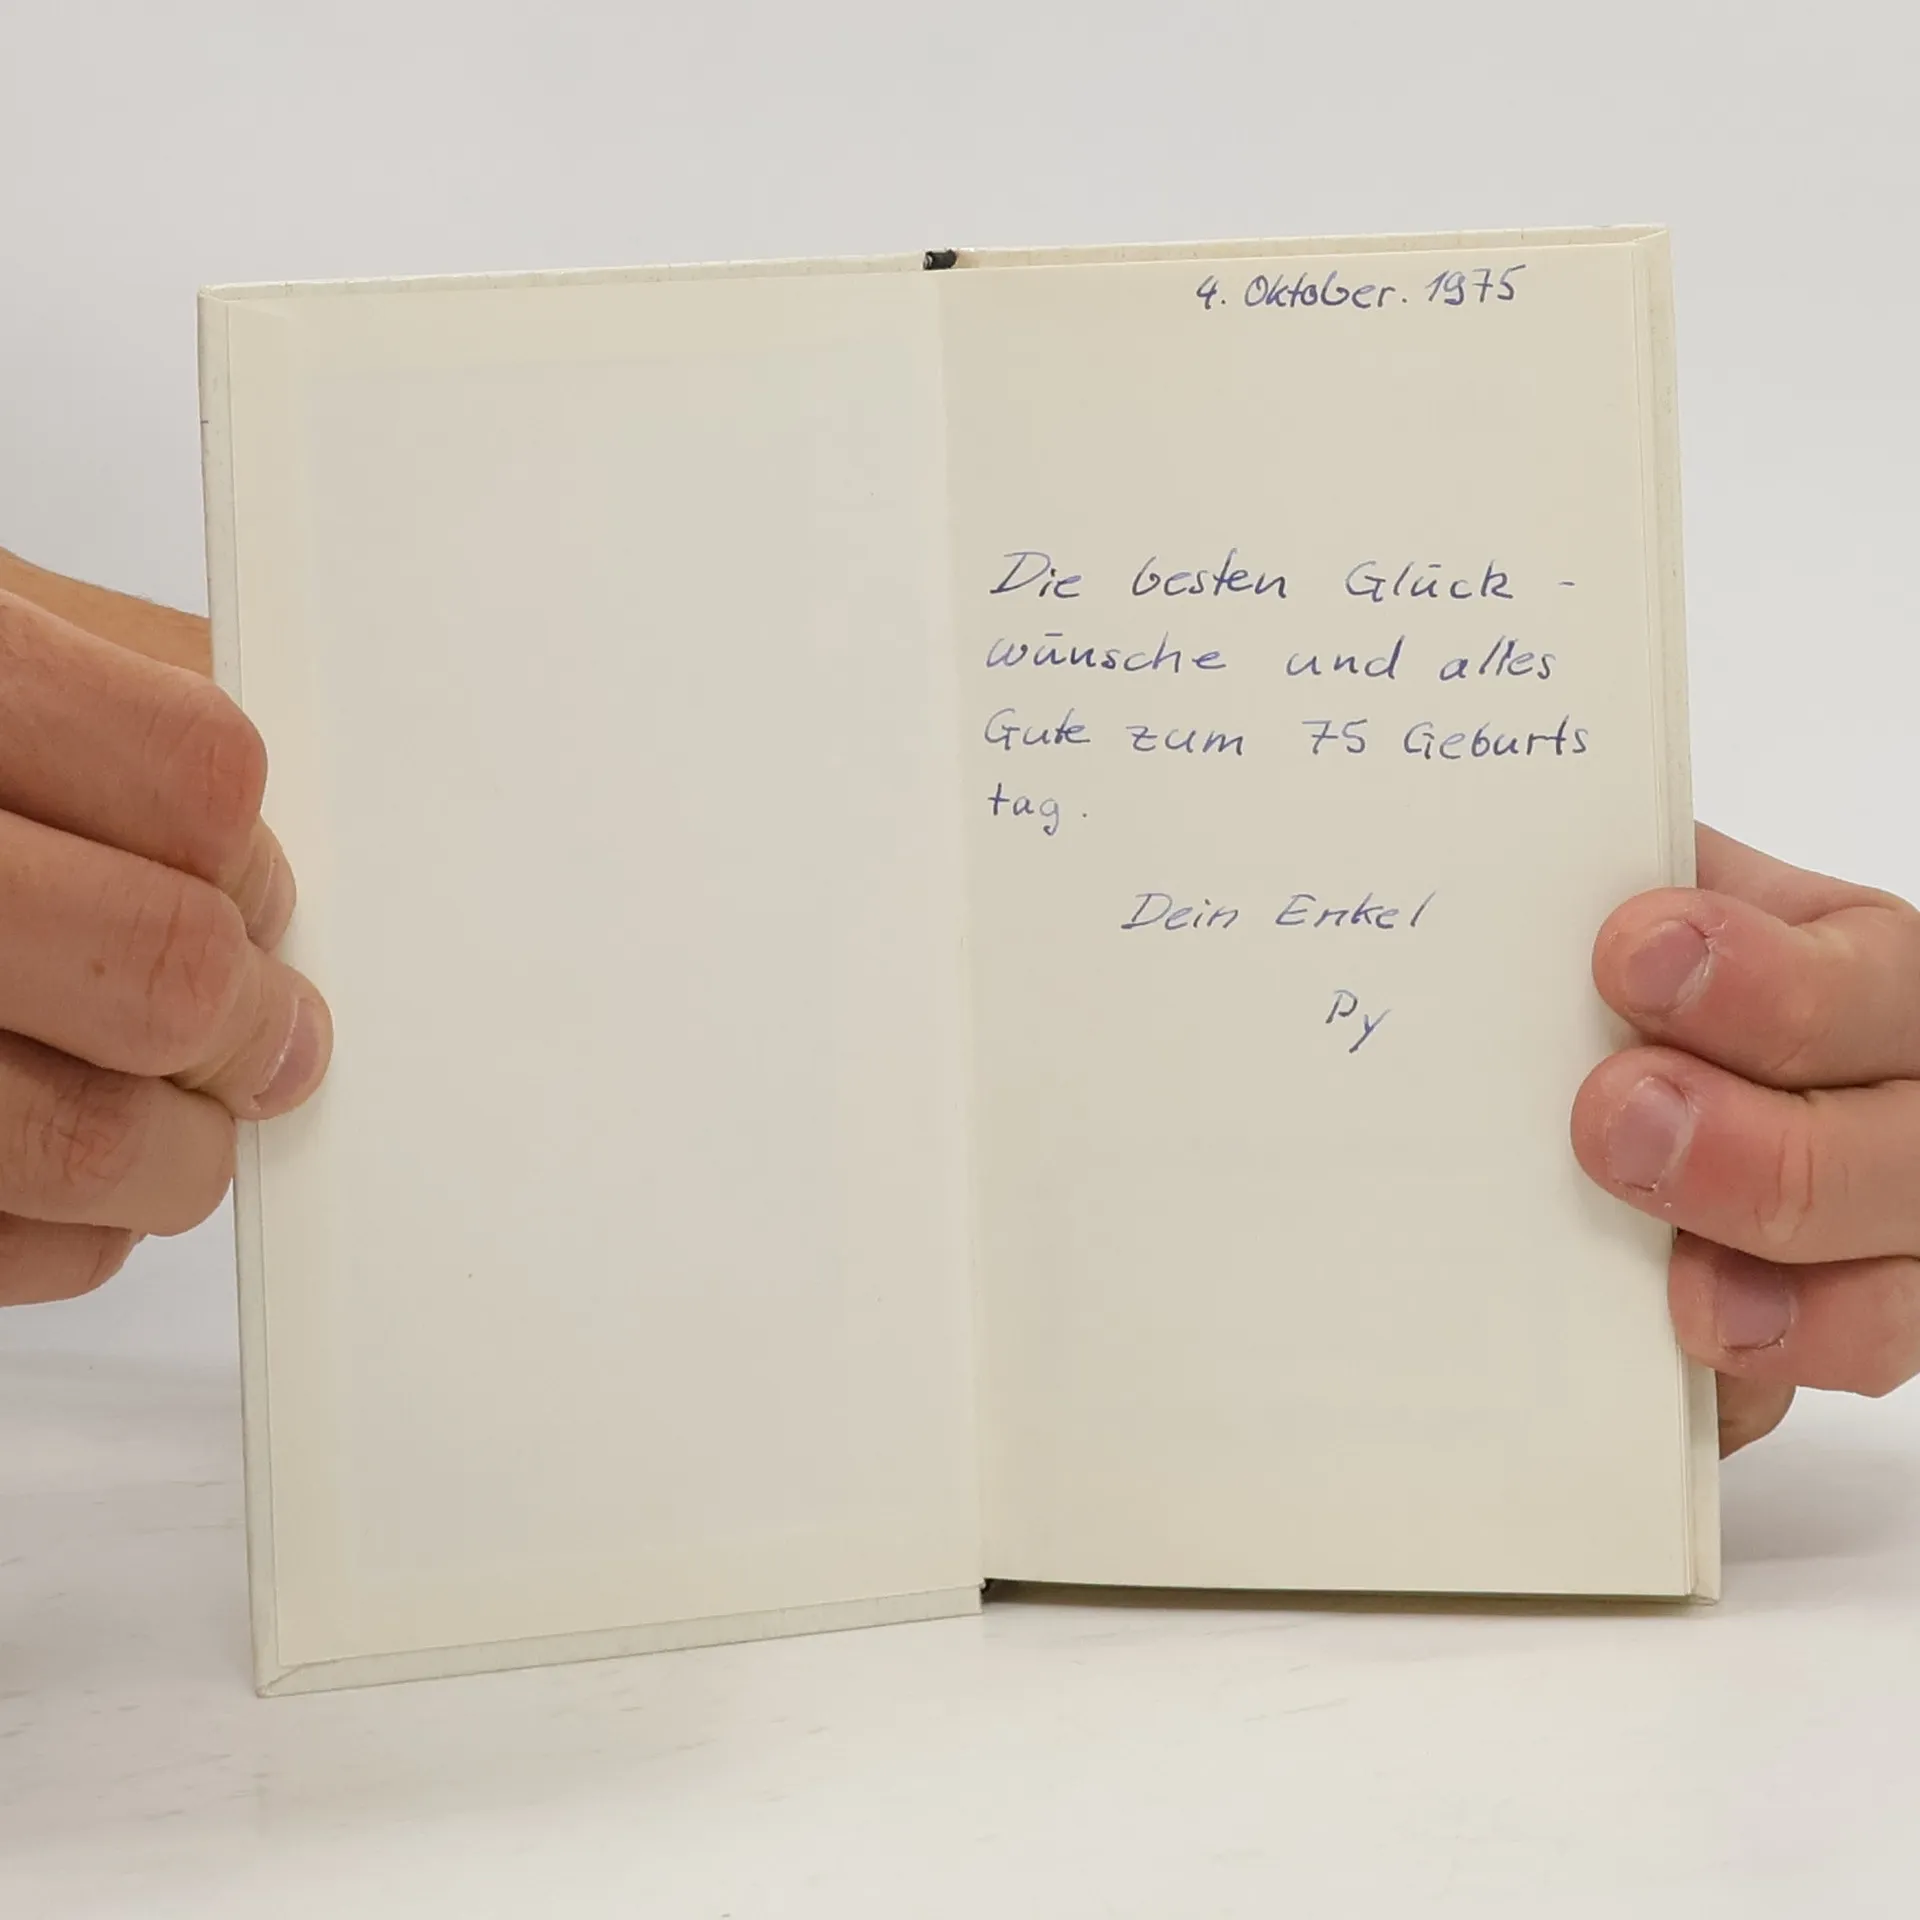 4. Oktober. 1975
Die besten Glück -
wünsche und alles
Gute zum 75 Geburts
tag.
Dein Enkel
Py